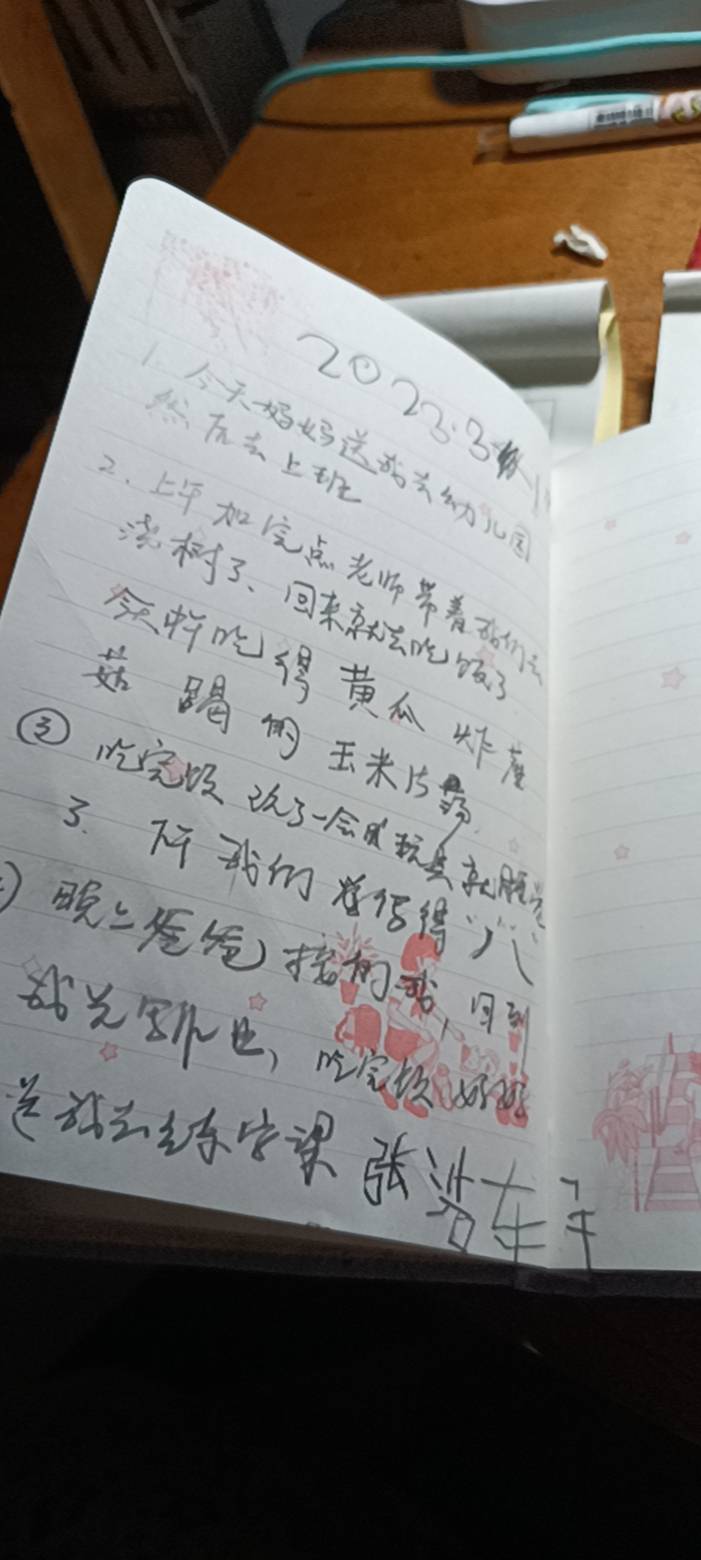 2023.3
1. 今天妈妈送我去幼儿园
然后去上班
2. 上午加完点老师带着我们去
浇树了、回来就去吃饭了
今天中午吃得黄瓜炸蘑
菇 喝的玉米片汤.
③ 吃完饭玩了一会玩具就睡觉
3. 下午我们学得
晚上爸爸接的我，回到
我先写作业，吃完饭妈妈
送我去练字课 张